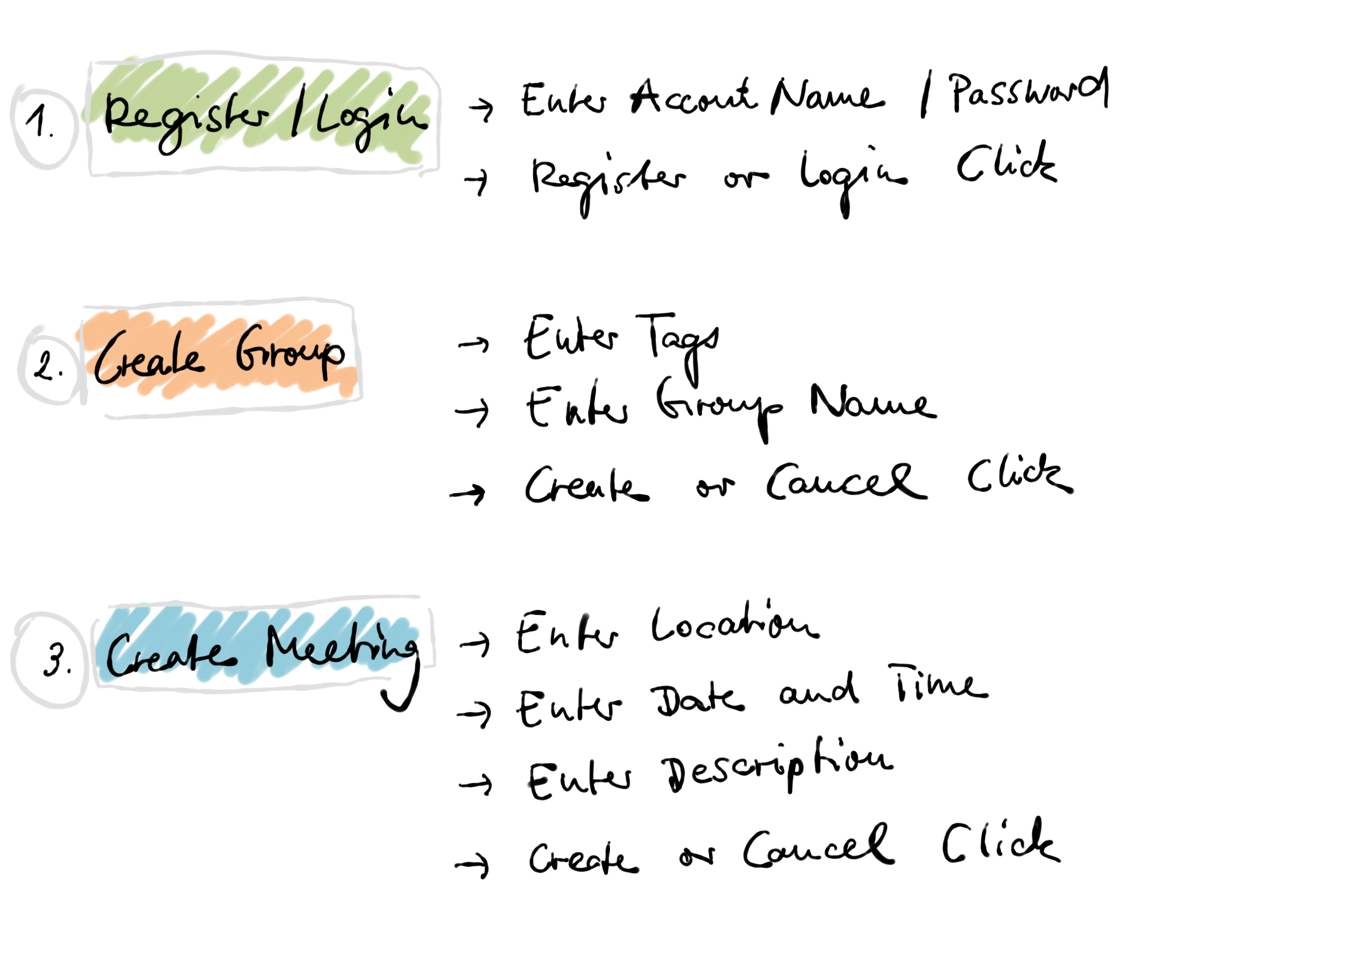 1. Register / Login
→ Enter Accout Name / Password
→ Register or Login Click
2. Create Group
→ Enter Tags
→ Enter Group Name
→ Create or Cancel Click
3. Create Meeting
→ Enter Location
→ Enter Date and Time
→ Enter Description
→ Create or Cancel Click